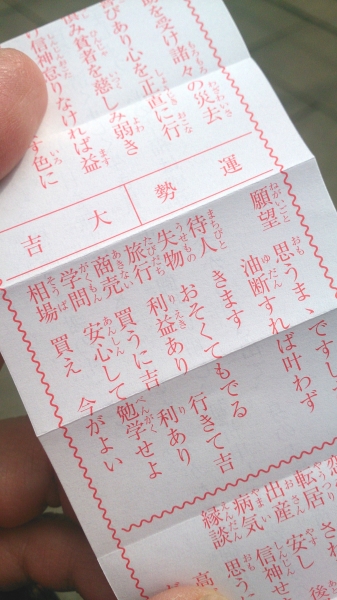 を受け諸々の災去
びあり心を正直に行
み貧者を慈しみ弱き
信神怠りなければ益
す色に
運勢
大吉
願望 思うまゝ
油断すれば叶わず
待人 きます
失物 おそくてもでる
旅行 利益あり 行きて吉
商売 買うに吉 利あり
学問 安心して勉学せよ
相場 買え 今がよい
転居
出産 安し
病気 信神せ
縁談 思う
高